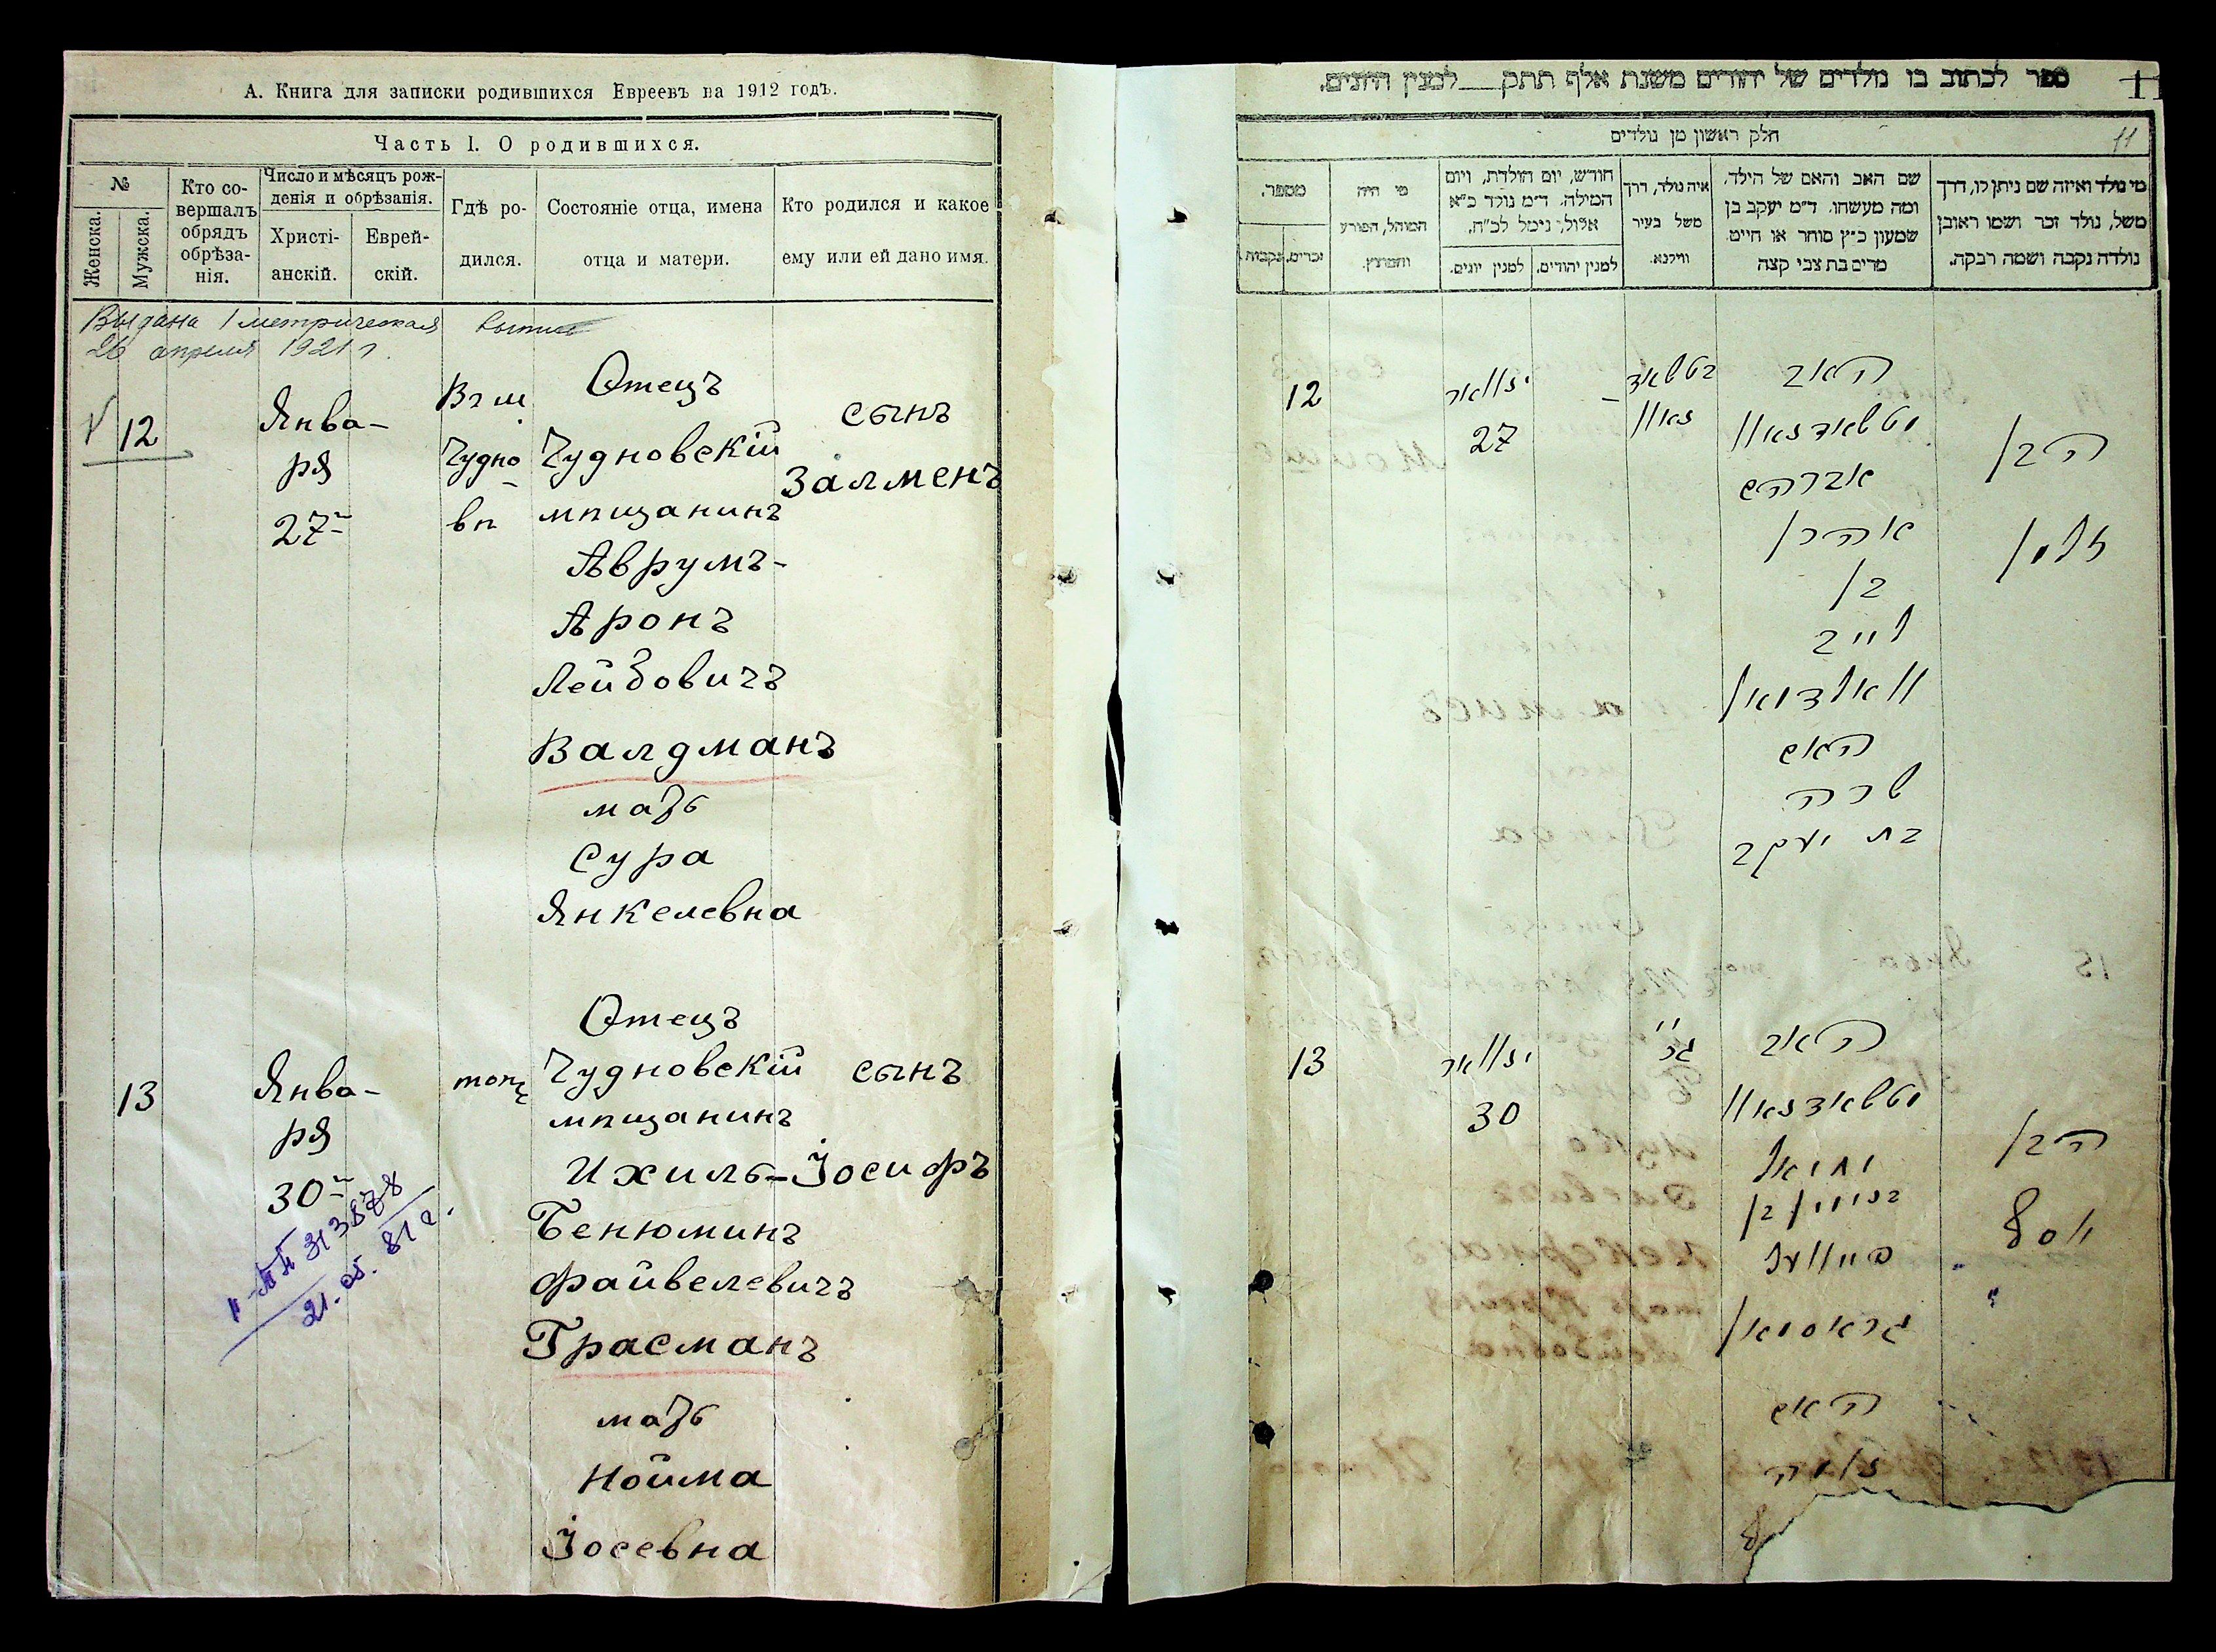 А. Книга для записки родившихся Евреевъ на 1912 годъ.
Часть I. О родившихся.
№
Женска.
Мужска.
Кто со-
вершалъ
обрядъ
обрѣза-
нія.
Число и мѣсяцъ рож-
денія и обрѣзанія.
Христі-
анскій.
Еврей-
скій.
Гдѣ ро-
дился.
Состояніе отца, имена
отца и матери.
Кто родился и какое
ему или ей дано имя.
Выдана 1 метрическая
26 апреля 1921 г.
12
Янва-
ря
27
Въ м.
Чудно
вѣ
Отецъ
Чудновскій
мѣщанинъ
Аврумъ-
Аронъ
Лейбовичъ
Валдманъ
мать
Сура
Янкелевна
сынъ
Залменъ
13
Янва-
ря
30
21.05.81г.
Отецъ
Чудновскій
мѣщанинъ
Ихиль-
Бенюминъ
Файвелевичъ
Грасманъ
мать
Нойма
Іосевна
сынъ
Іосифъ
ספר לכתוב בו נולדים של יהודים משנת אלף תתק למנין היונים.
11
חלק ראשון מן נולדים
11
מי נולד ואיזה שם ניתן לו, דרך
משל, נולד זכר ושמו ראובן
נולדה נקבה ושמה רבקה.
שם האב והאם של הילד,
ומה מעשהו. ד״מ יעקב בן
שמעון כ״ץ סוחר או חייט.
מרים בת צבי קצה
איה נולד, דרך
משל בעיר
ווילנא.
חודש, יום הולדת, ויום
המילה. ד״מ נולד כ״א
אלול, נימל לכ״ח.
למנין יהודים.
למנין יונים.
מי היה
המוהל, הפורע
והמוצץ.
מספר.
זכרים.
נקבות.
12
יאנואר
27
האב
אברהם
אהרן
בן
לייב
וואלדמאן
האם
שרה
בת יעקב
הבן
זלמן
13
יאנואר
30
האב
יחיאל
בנימין בן
פייוועל
גראסמאן
האם
נאמה
הבן
יוסף